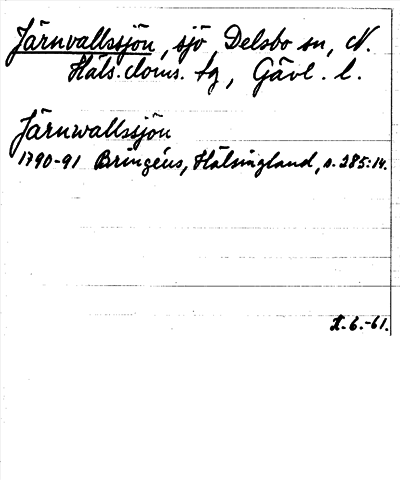 Järnvallssjön, sjö, Delsbo sn, N.
Häls. doms. tg, Gävl. l.
Järnwallssjön
1790-91 Bringéus, Hälsingland, s. 285:14.
X.6.-61.